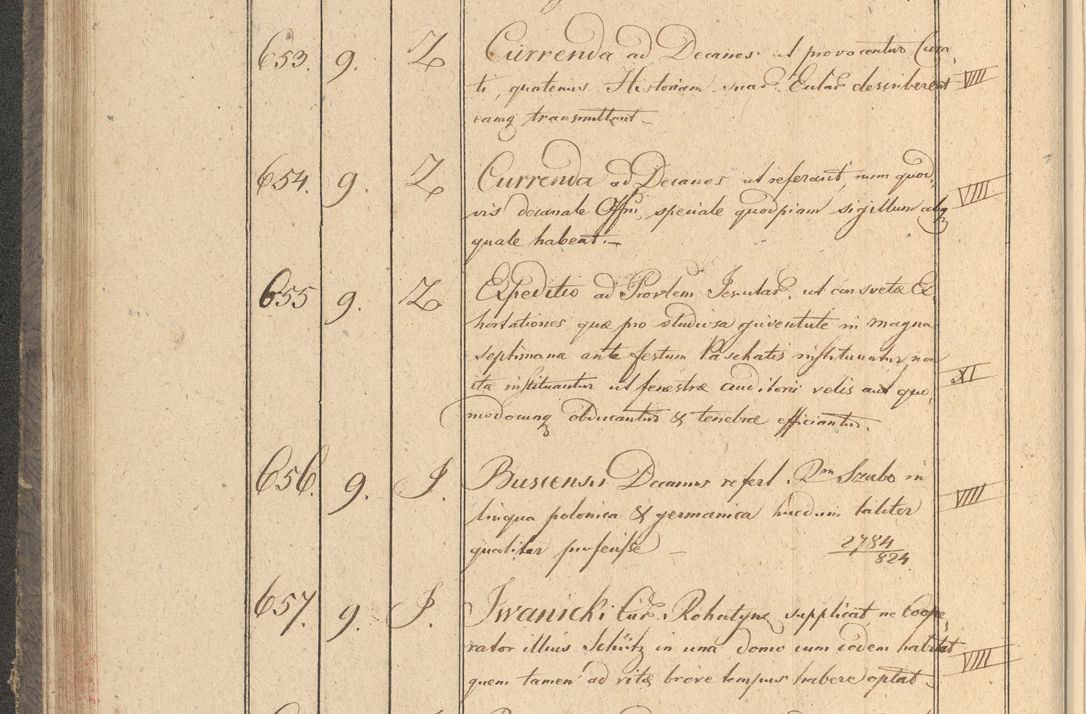 653. 9. Z Currenda ad Decanos ut provocentur Cura,
ti, quatenus Historiam suar. Ecclar. describerent VIII
eamq transmittant –
654. 9. Z Currenda ad Decanos ut referant, num quod,
vis decanale Offm, speciale quodpiam sigillum alq VIII
quale habeat. –
655 9. Z Expeditio ad Provlem Jeuitar. ut consvetæ Ex,
hortationes quæ pro studiosa juventute in magna
septimana ante festum Paschatis instituuntur, non
ita instituantur ut fenestræ auditorii velis aut quo, XI
modocunq obducantur & tenebræ efficiantur.
656. 9. J. Buscensis Decanus refert Rm Szabo in
lingua polonica & germanica hucdum taliter VIII
qualiter profecisse – 2784/824
657. 9. J. Iwanicki Cur. Rohatyne supplicat ne Coope,
rator illius Schütz in una domo cum eodem habitet
quem tamen ad vitæ breve tempus habere optat – VIII